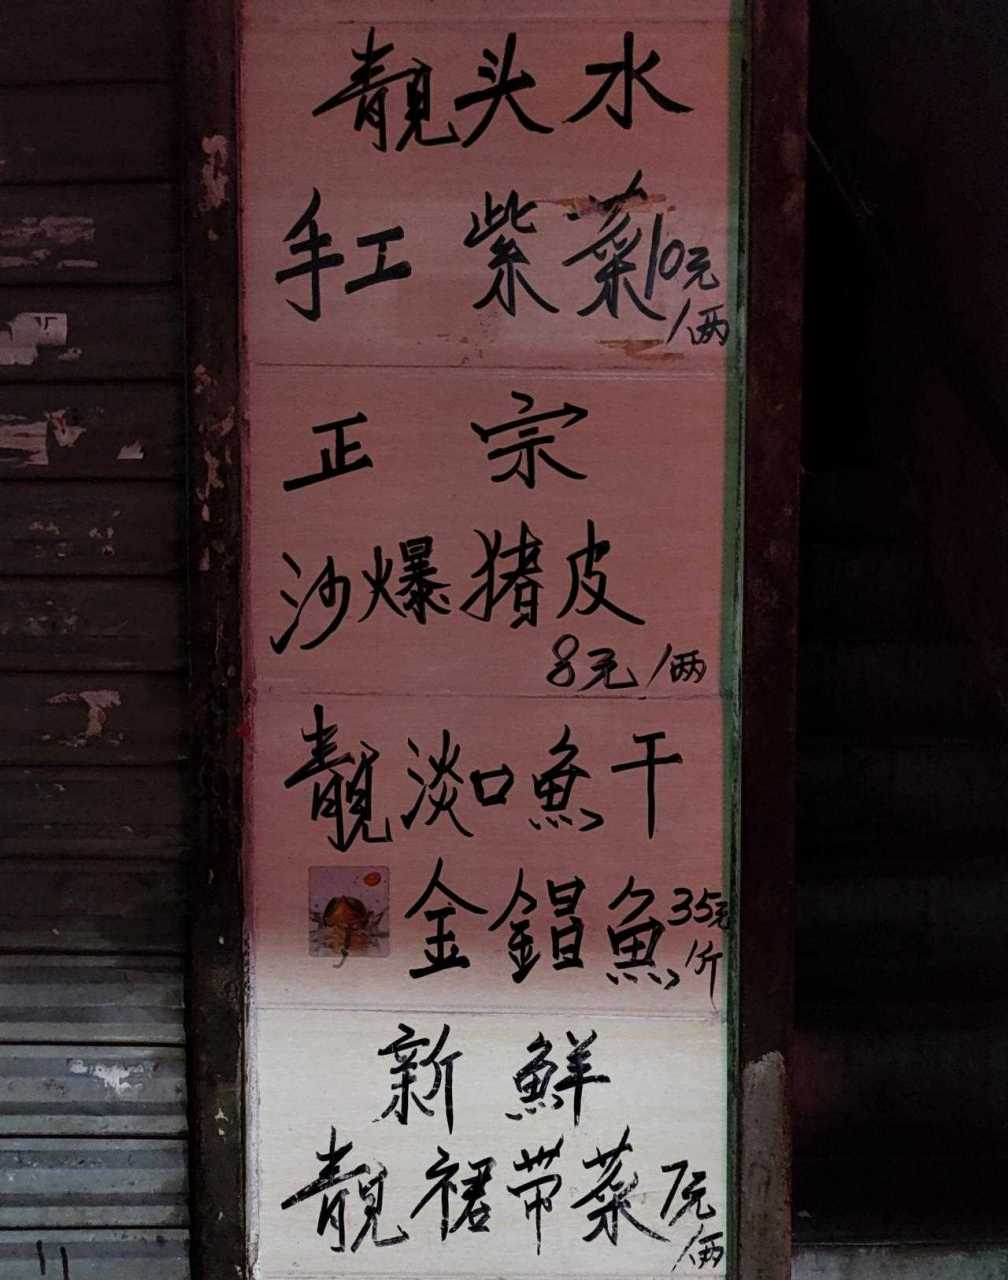 靚头水
手工 紫菜 10元
/两
正 宗
沙爆猪皮
8元/两
靚淡口魚干
金鲳魚 35元
/斤
新 鮮
靚裙带菜 7元
/两